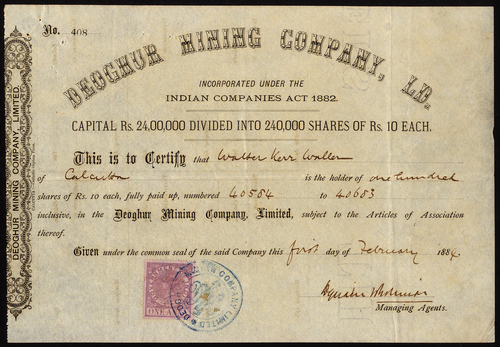 No. 408
DEOGHUR MINING COMPANY, LD.
INCORPORATED UNDER THE
INDIAN COMPANIES ACT 1882.
CAPITAL Rs. 24,00,000 DIVIDED INTO 240,000 SHARES OF Rs. 10 EACH.
This is to Certify that Walter Kerr Waller
of Calcutta is the holder of one hundred
shares of Rs. 10 each, fully paid up, numbered 40584 to 40683
inclusive, in the Deoghur Mining Company, Limited, subject to the Articles of Association
thereof.
Given under the common seal of the said Company this first day of February 1884.
Managing Agents.
DEOGHUR MINING COMPANY, LIMITED.
ONE A
MINING COMPANY LIMITED